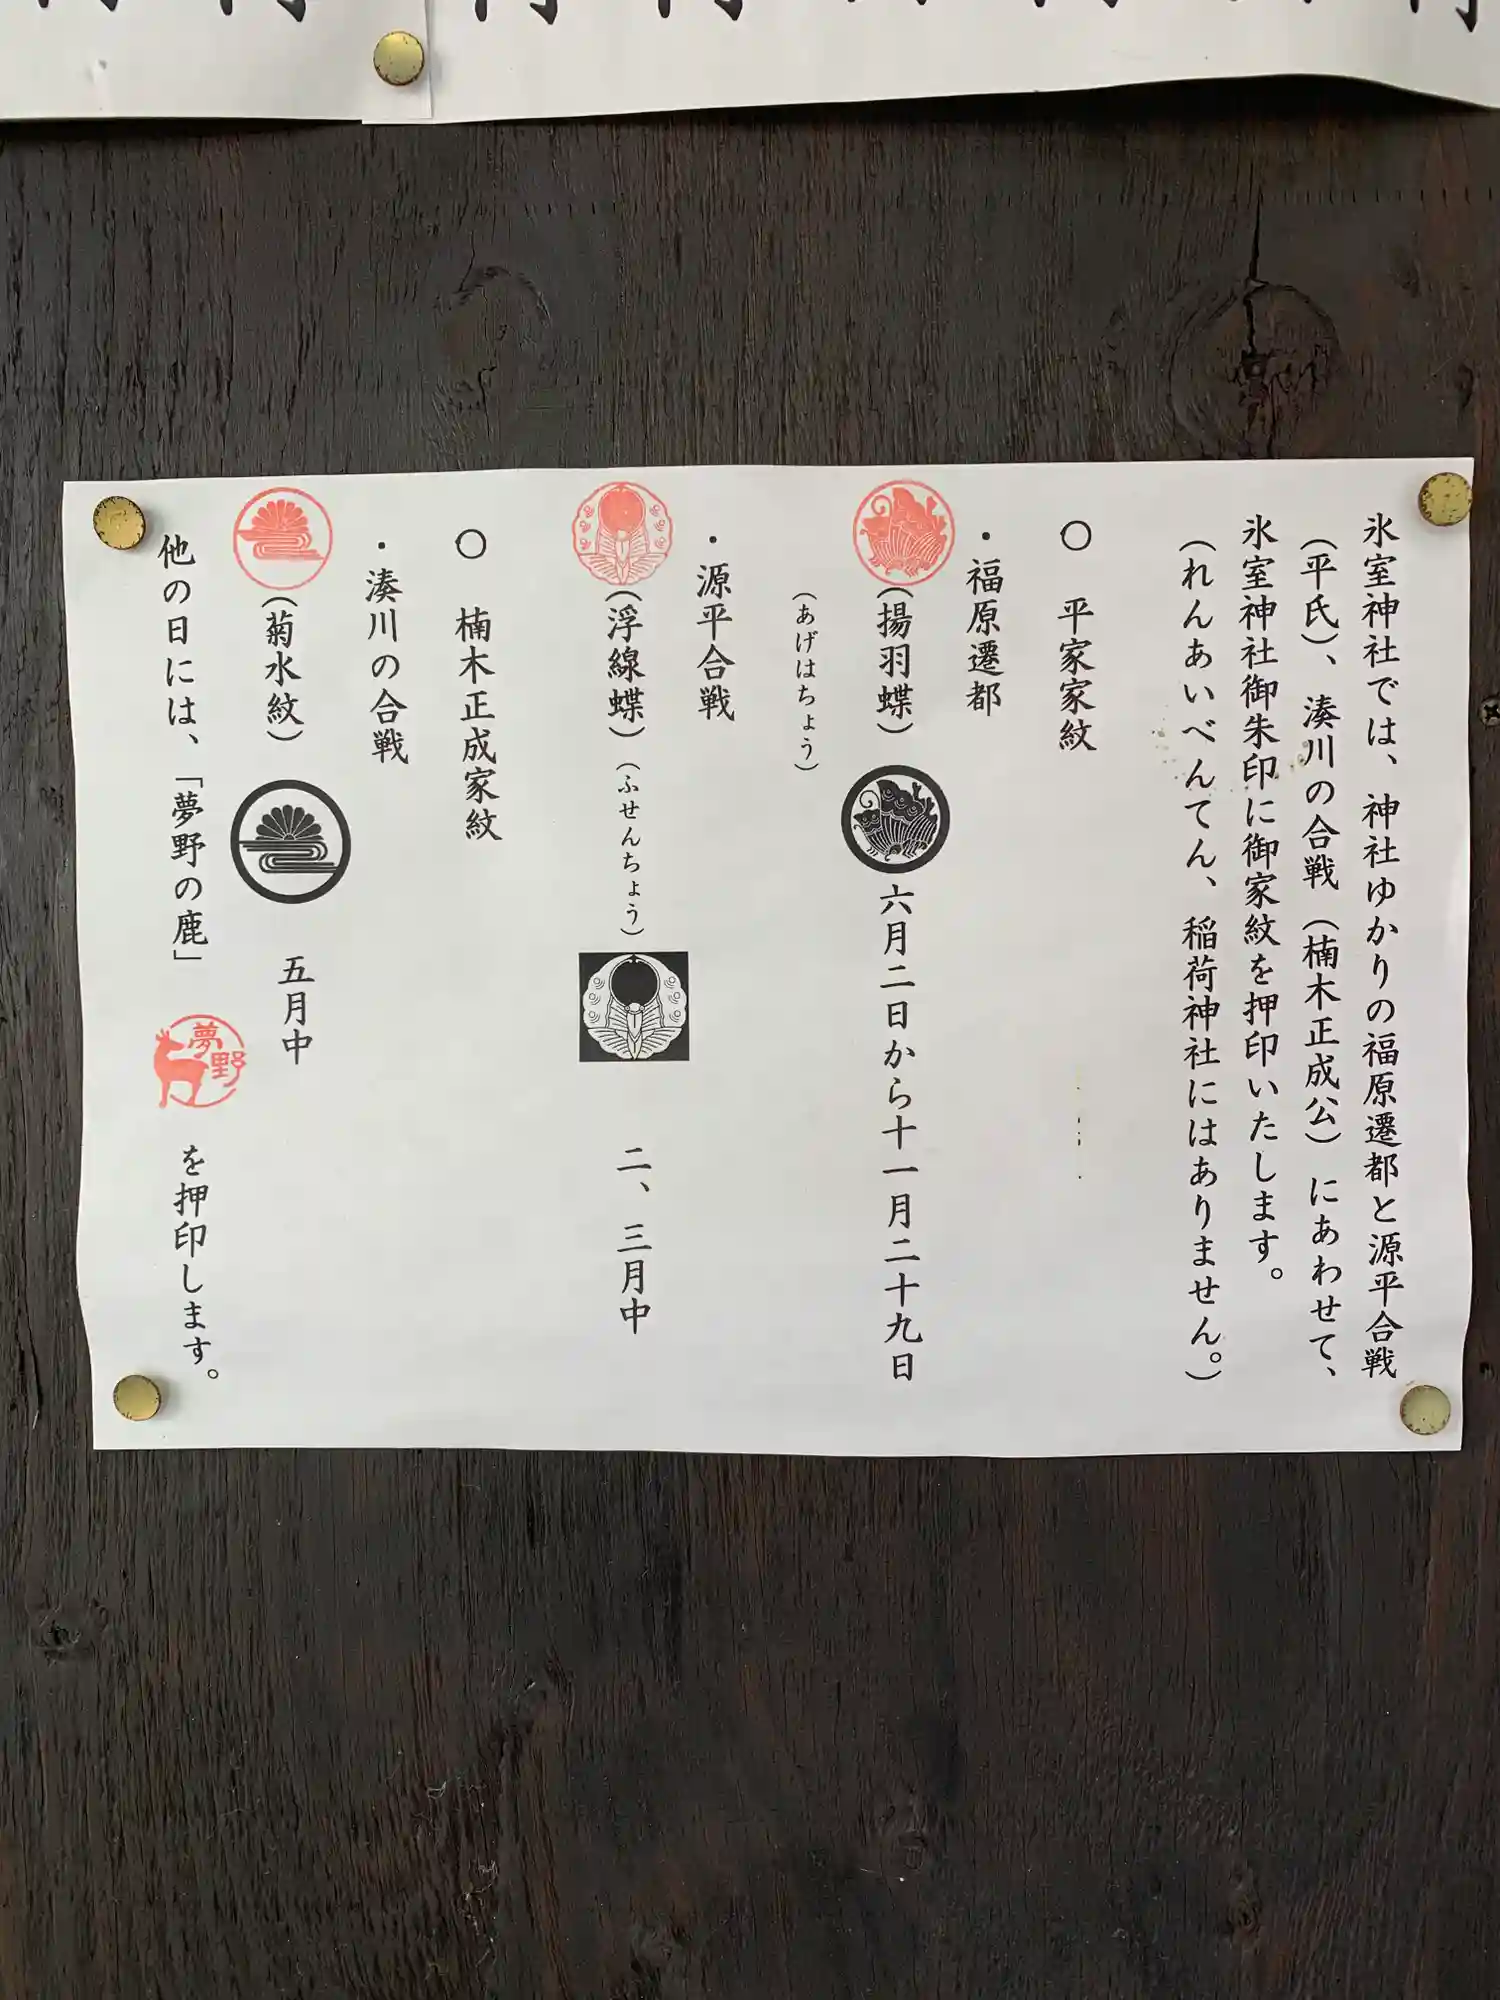 氷室神社では、神社ゆかりの福原遷都と源平合戦
（平氏）、湊川の合戦（楠木正成公）にあわせて、
氷室神社御朱印に御家紋を押印いたします。
（れんあいべんてん、稲荷神社にはありません。）
〇　平家家紋
・福原遷都
（揚羽蝶）六月二日から十一月二十九日
（あげはちょう）
・源平合戦
（浮線蝶）（ふせんちょう）二、三月中
〇　楠木正成家紋
・湊川の合戦
（菊水紋）五月中
他の日には、「夢野の鹿」夢野を押印します。